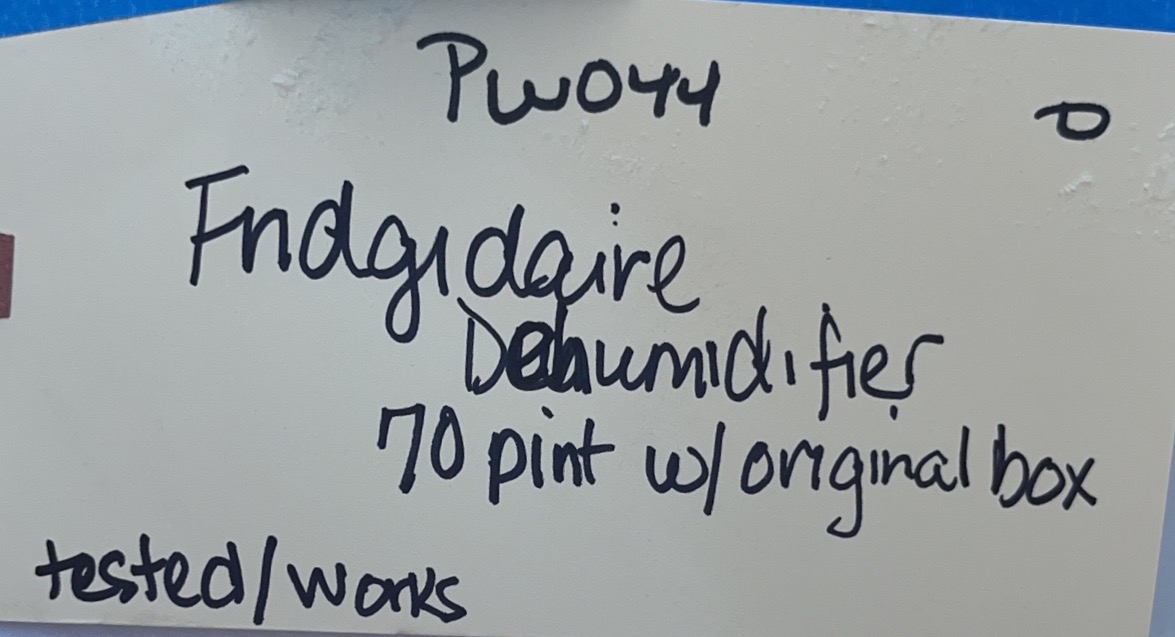 PW044
Fridgidaire
Dehumidifier
70 pint w/ original box
tested/works